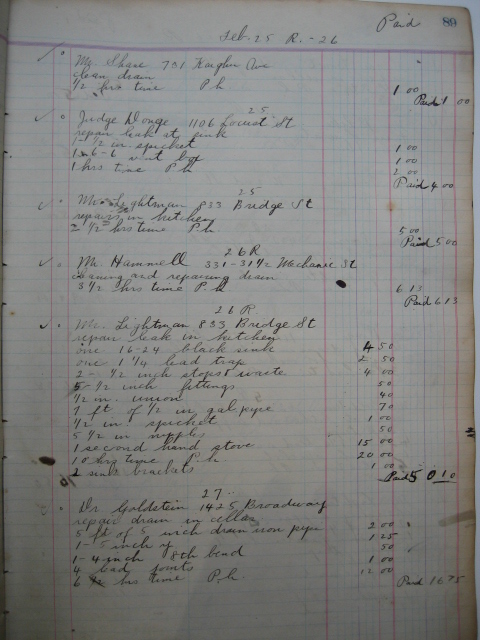 Paid 89
Feb. 25 R. - 26
Mr. Share 731 Kaighn Ave
clean drain
1/2 hrs time P.h 1 00
Paid 1 00
25
Judge Donge 1106 Locust St
repair leak at sink
1 - 1/2 in. spicket 1 00
1 - 6-6 vent 1 00
1 hrs time P.h 2 00
Paid 4 00
25
Mr. Lightman 833 Bridge St
repairs in kitchen
2 1/2 hrs time P.h. 5 00
Paid 5 00
26 R
Mr. Hammell 331-31 1/2 Mechanic St
cleaning and repairing drain
3 1/2 hrs time P.h 6 13
Paid 6 13
26 R.
Mr. Lightman 833 Bridge St
repair leak in kitchen
one 16-24 black sink 4 50
one 1 1/4 lead trap 2 50
2 - 1/2 inch stops & waste 4 00
5 - 1/2 inch fittings 50
1/2 in. union 40
7 ft of 1/2 in. gal pipe 70
1/2 in spicket 1 00
5 1/2 in nipples 50
1 second hand stove 15 00
10 hrs time P.h 20 00
2 sink brackets 1 00
Paid 50 10
27 -
Dr. Goldstein 1425 Broadway
repair drain in cellar
5 ft of 5 inch drain iron pipe 2 00
1 - 5 inch y 1 25
1 - 4 inch 8th bend 50
4 lead joints 1 00
6 hrs time P.h. 12 00
Paid 16 75